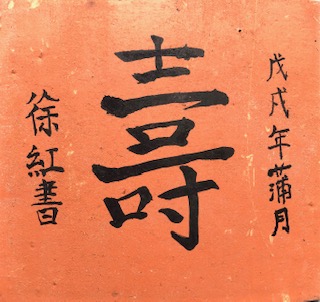 戊戌年蒲月
壽
徐紅書